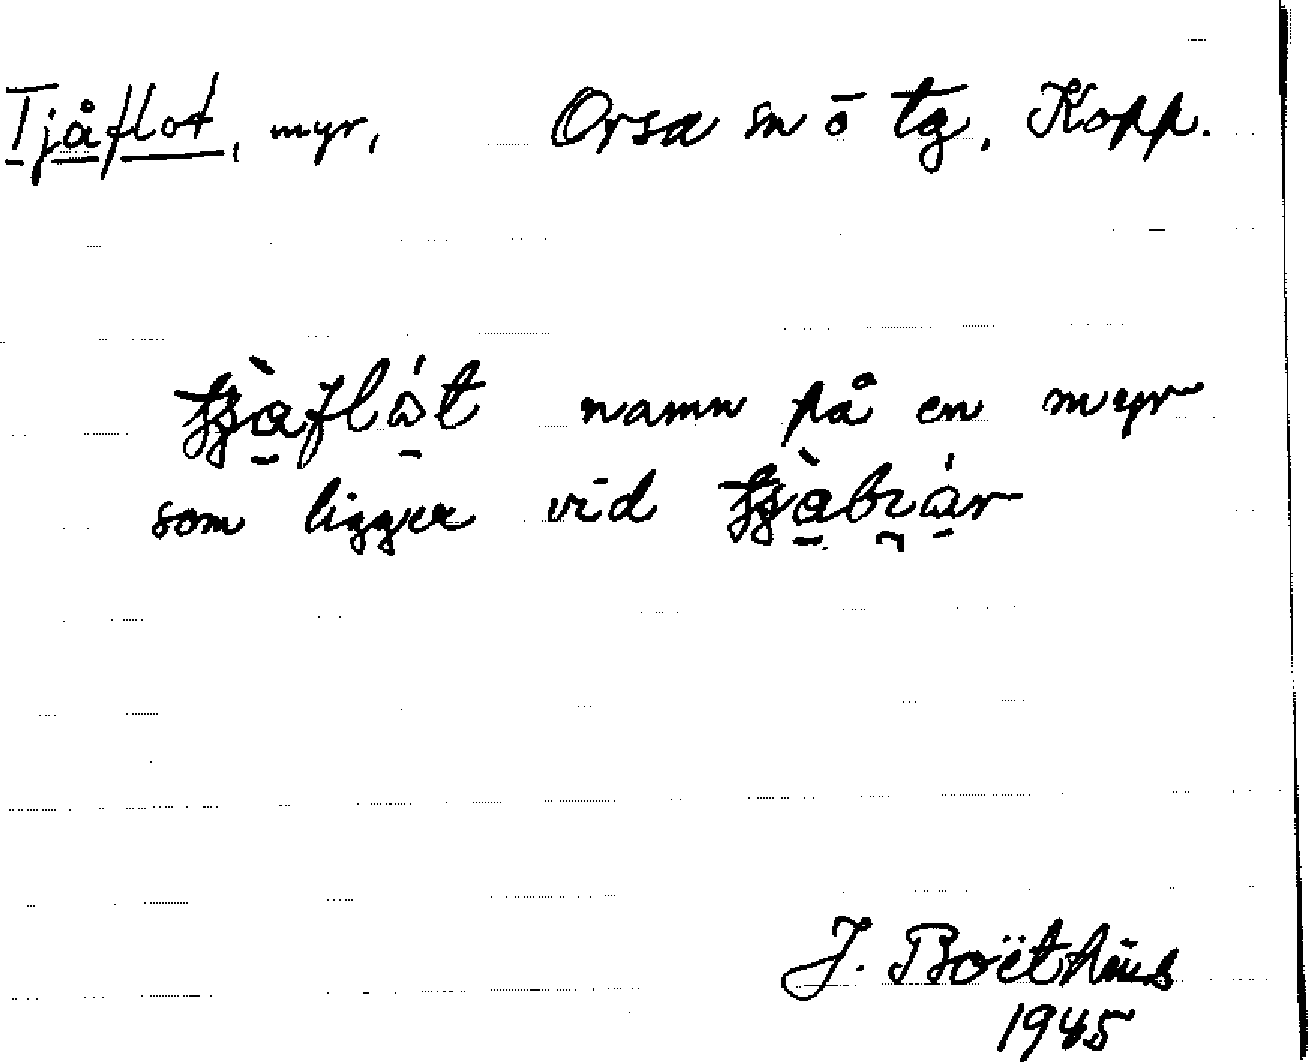 Tjåflot, myr, Orsa sn ö tg, Kopp.
namn på en myr
som ligger vid
J. Boëthius
1945